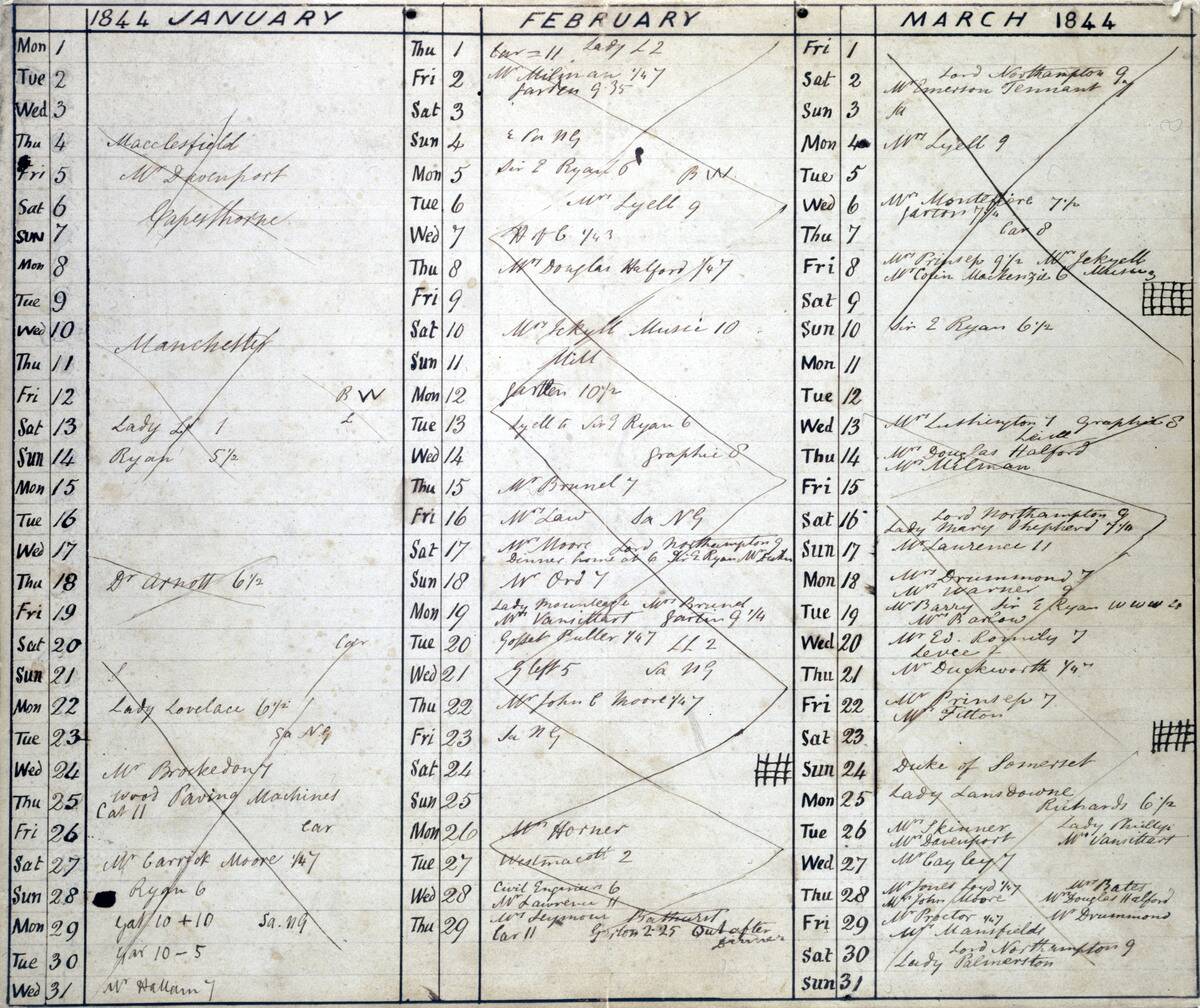 1844 JANUARY
Mon 1
Tue 2
Wed 3
Thu 4 Macclesfield
Fri 5 Mr Davenport
Sat 6 Capesthorne
SUN 7
Mon 8
Tue 9
Wed 10 Manchester
Thu 11
Fri 12 B W
Sat 13 Lady L 1 L
Sun 14 Ryan 5½
Mon 15
Tue 16
Wed 17
Thu 18 Dr Arnott 6½
Fri 19
Sat 20 Car
Sun 21
Mon 22 Lady Lovelace 6½
Tue 23 Sa NG
Wed 24 Mr Brockedon 7
Thu 25 Wood Paving Machines
Car 11
Fri 26 Car
Sat 27 Mr Carrick Moore ¼7
Sun 28 Ryan 6
Mon 29 Gar 10 + 10 Sa. NG
Tue 30 Gar 10 - 5
Wed 31 Mr Hallam 7
FEBRUARY
Thu 1 Car = 11 Lady L 2
Fri 2 Mr Milman ¼7
Garden 9.35
Sat 3
Sun 4 NG
Mon 5 Sir E Ryan 6 B W
Tue 6 Mrs Lyell 9
Wed 7 H of C ¼3
Thu 8 Mrs Douglas Halford ¼7
Fri 9
Sat 10 Mrs Jekyll Music 10
Sun 11 Mill
Mon 12 Garden 10½
Tue 13 Lyell Sir E Ryan 6
Wed 14 Graphic 8
Thu 15 Mr Brunel 7
Fri 16 Mr Law Sa NG
Sat 17 Mr Moore Lord Northampton 9
Dinner home at 6 Sir E Ryan Mr
Sun 18 Mr Ord 7
Mon 19 Lady Mounteagle Mrs Brunel
Mrs Vansittart Garden 9¼
Tue 20 Gosset Buller ¼7 LL 2
Wed 21 G left 5 Sa NG
Thu 22 Mr John C Moore ¼7
Fri 23 Sa NG
Sat 24
Sun 25
Mon 26 Mr Horner
Tue 27 Westmacott 2
Wed 28 Civil Engineers 6
Mr Lawrence 11
Thu 29 Mrs Seymour Bathurst
Car 11 Garden 2.25 Out after
Dinner
MARCH 1844
Fri 1
Sat 2 Lord Northampton 9
Mr Emerson Tennant
Sun 3 M
Mon 4 Mrs Lyell 9
Tue 5
Wed 6 Mr Montefiore 7½
Garden 7¼
Thu 7 Car 8
Fri 8 Mrs Prinsep 9½ Mrs Jekyll
Mr Colin Mackenzie 6 Music
Sat 9
Sun 10 Sir E Ryan 6½
Mon 11
Tue 12
Wed 13 Mrs Lushington 7 Graphic 8
Levee
Thu 14 Mrs Douglas Halford
Mrs Milman
Fri 15
Sat 16 Lord Northampton 9
Lady Mary Shepherd 7¼
Sun 17 Mr Laurence 11
Mon 18 Mrs Drummond 7
Mrs Warner 9
Tue 19 Mr Barry Sir E Ryan
Mrs Barlow
Wed 20 Mr Ed. Romilly 7
Levee 2
Thu 21 Mr Duckworth ¼7
Fri 22 Mr Prinsep 7
Mr Fitton
Sat 23
Sun 24 Duke of Somerset
Mon 25 Lady Lansdowne
Richards 6½
Tue 26 Mrs Skinner Lady Phillips
Mr Davenport Mrs Vansittart
Wed 27 Mr Cayley 7
Thu 28 Mr Jones Loyd ¼7 Mrs Bates
Mr John Moore Mr Douglas Halford
Fri 29 Mr Proctor ¼7 Mr Drummond
Mrs Mansfields
Sat 30 Lord Northampton 9
Lady Palmerston
Sun 31